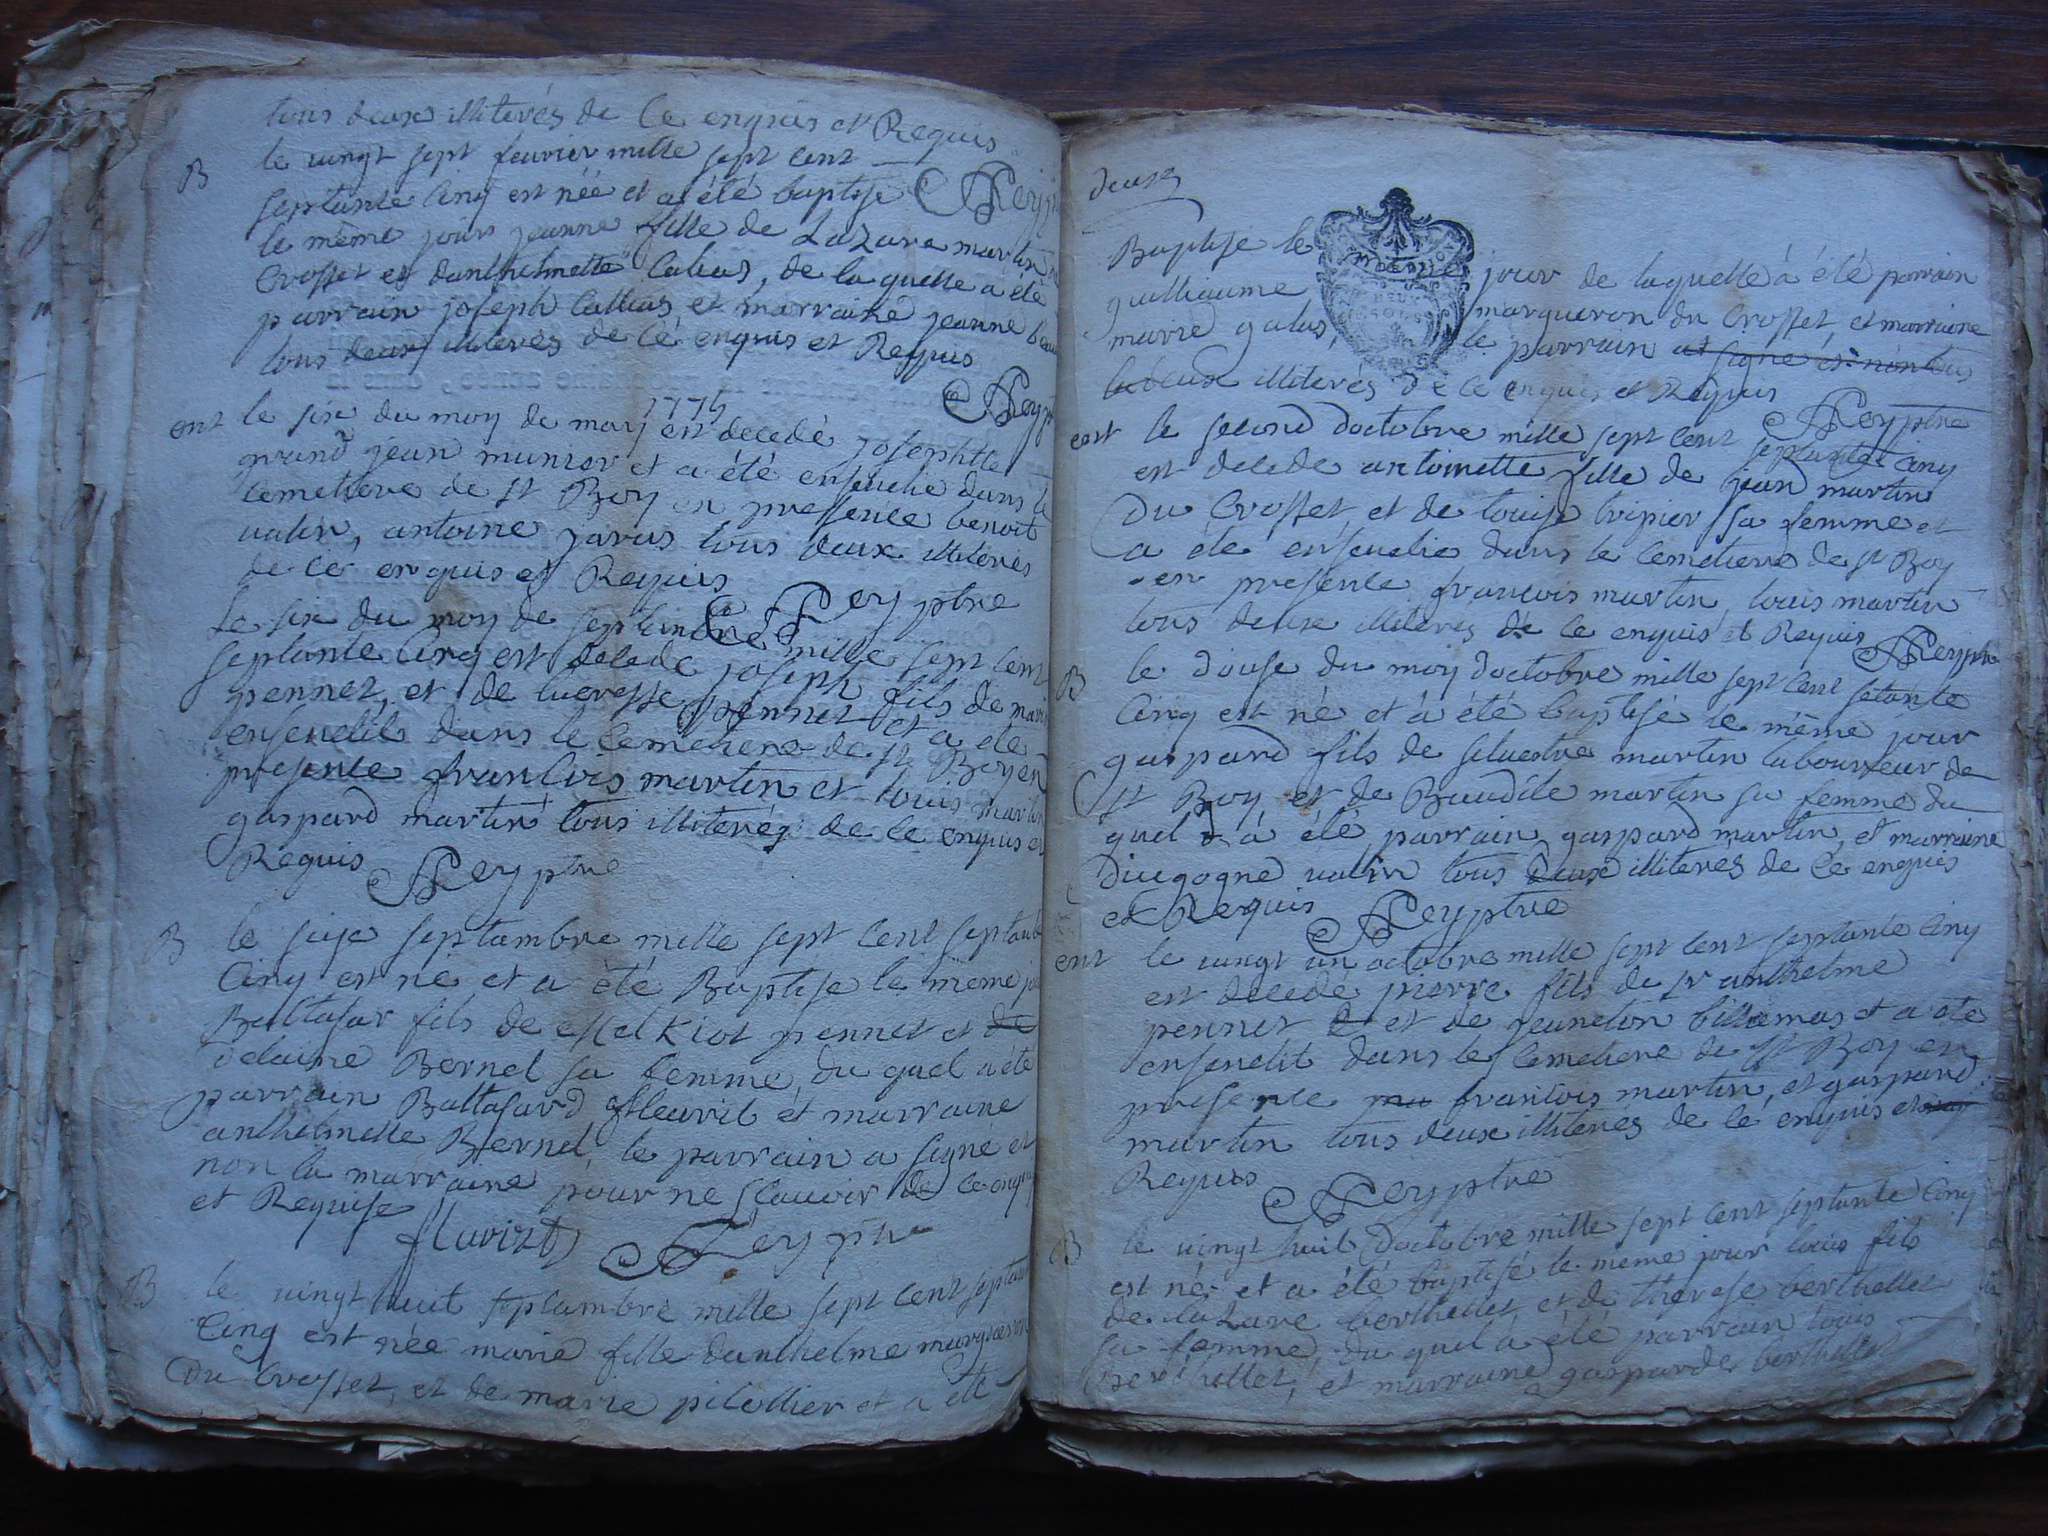 tous deux illiterés de Ce enquis et Requis
B le vingt sept fevrier mille sept cent
septante Cinq est née et a été baptise
le même jours jeanne fille de Lazare martin
Crosset et danthelmette Calias, de la quelle a été
parrain joseph Callias et marraine jeanne
tous deux illiteres de Cé enquis et Requis
1775
ent le six du moy de may est decedé joseph
grand jean munier et a été enseveli dans le
Cemetiere de st Boy en presence benoit
valin, antoine javas tous deux illiterés
de Ce enquis et Requis
Reyptre
Le six du moy de septembre mille sept cent
septante Cinq est decede joseph fils de
pennet, et de lucresse pennet et a été
ensevelit dans le Cemetiere de st Boy en
presence francois martin et louis martin
gaspard martin tous illiterés de Ce enquis et
Requis Reyptre
B le seize septambre mille sept Cent septante
Cinq est né et a été Baptise le même
Baltasar fils de Melkiot pennet et de
delaime Bernel sa femme, du quel a été
parrain Baltasard fleuvit et marraine
anthelmette Bernel, le parrain a signé et
non la marraine pour ne scavoir de Ce enquise
et Requise
fluvist Reyptre
B le vingt huit septambre mille sept cent
Cinq est née marie fille danthelme marguron
du Crosset, et de marie pitollier et a été
deux
Baptise le même jour de laquelle á été parrain
guilliaume margueron du Crosset, et marraine
marie galas, le parrain et signé et non
les deux illiterés de Ce enquis et Requis
Reyptre
ent le second doctobre mille sept cent septante Cinq
est decede antoinette fille de jean martin
Du Crosset et de louise bripier sa femme et
a été ensevelie dans le Cemetiere de st Boy
en presence francois martin, louis martin
tous deux illiteres de Ce enquis et Requis Reyptre
B le douse du moy doctobre mille sept Cent setante
Cinq est né et á été baptisé le même jour
gaspard fils de silvestre martin laboureur de
st Boy et de Baudile martin sa femme du
quel á été parrain gaspard martin, et marraine
diegogne valin tous deux illiterés de Ce enquis
et Requis Reyptre
ent le vingt un octobre mille sept cent septante Cinq
est decedé pierre fils de sr anthelme
pennet et de jeaneton billiemas et a été
ensevelit dans le Cemetiere de st Boy en
presence francois martin, et gaspard
martin tous deux illiterés de Cé enquis et
Requis Reyptre
B le vingt huit Doctobre mille sept cent septante Cinq
est né et a été baptisé le même jour louis fils
de lazare berthellet et de therese berthellet
sa femme, du quel á été parrain louis
berthellet, et marraine gasparde berthellet